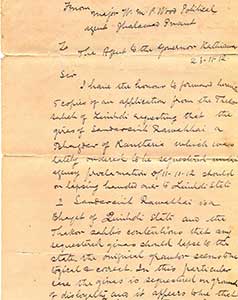 From
Major W. M. P. Wood Political
agent Jhalawad Prant
To
The Agent to the Governor Kathiawar
23-11-12
Sir
I have the honour to forward herewith
5 copies of an application from the Thakor
Saheb of Limbdi requesting that the
giras of Sandaveil Ranabhai a
Bhagdar of which was
lately ordered to be sequestrated under
agency proclamation of 11-11-12 should
on lapsing handed over to Limbdi State
2 Ranabhai is a
Bhayat of Limbdi State and the
Thakor sahibs contentions that any
sequestrated giras should lapse to the
state the original grantor seems
to be correct. In this particular
case the giras is sequestrated on grounds
of disloyalty and it appears to that